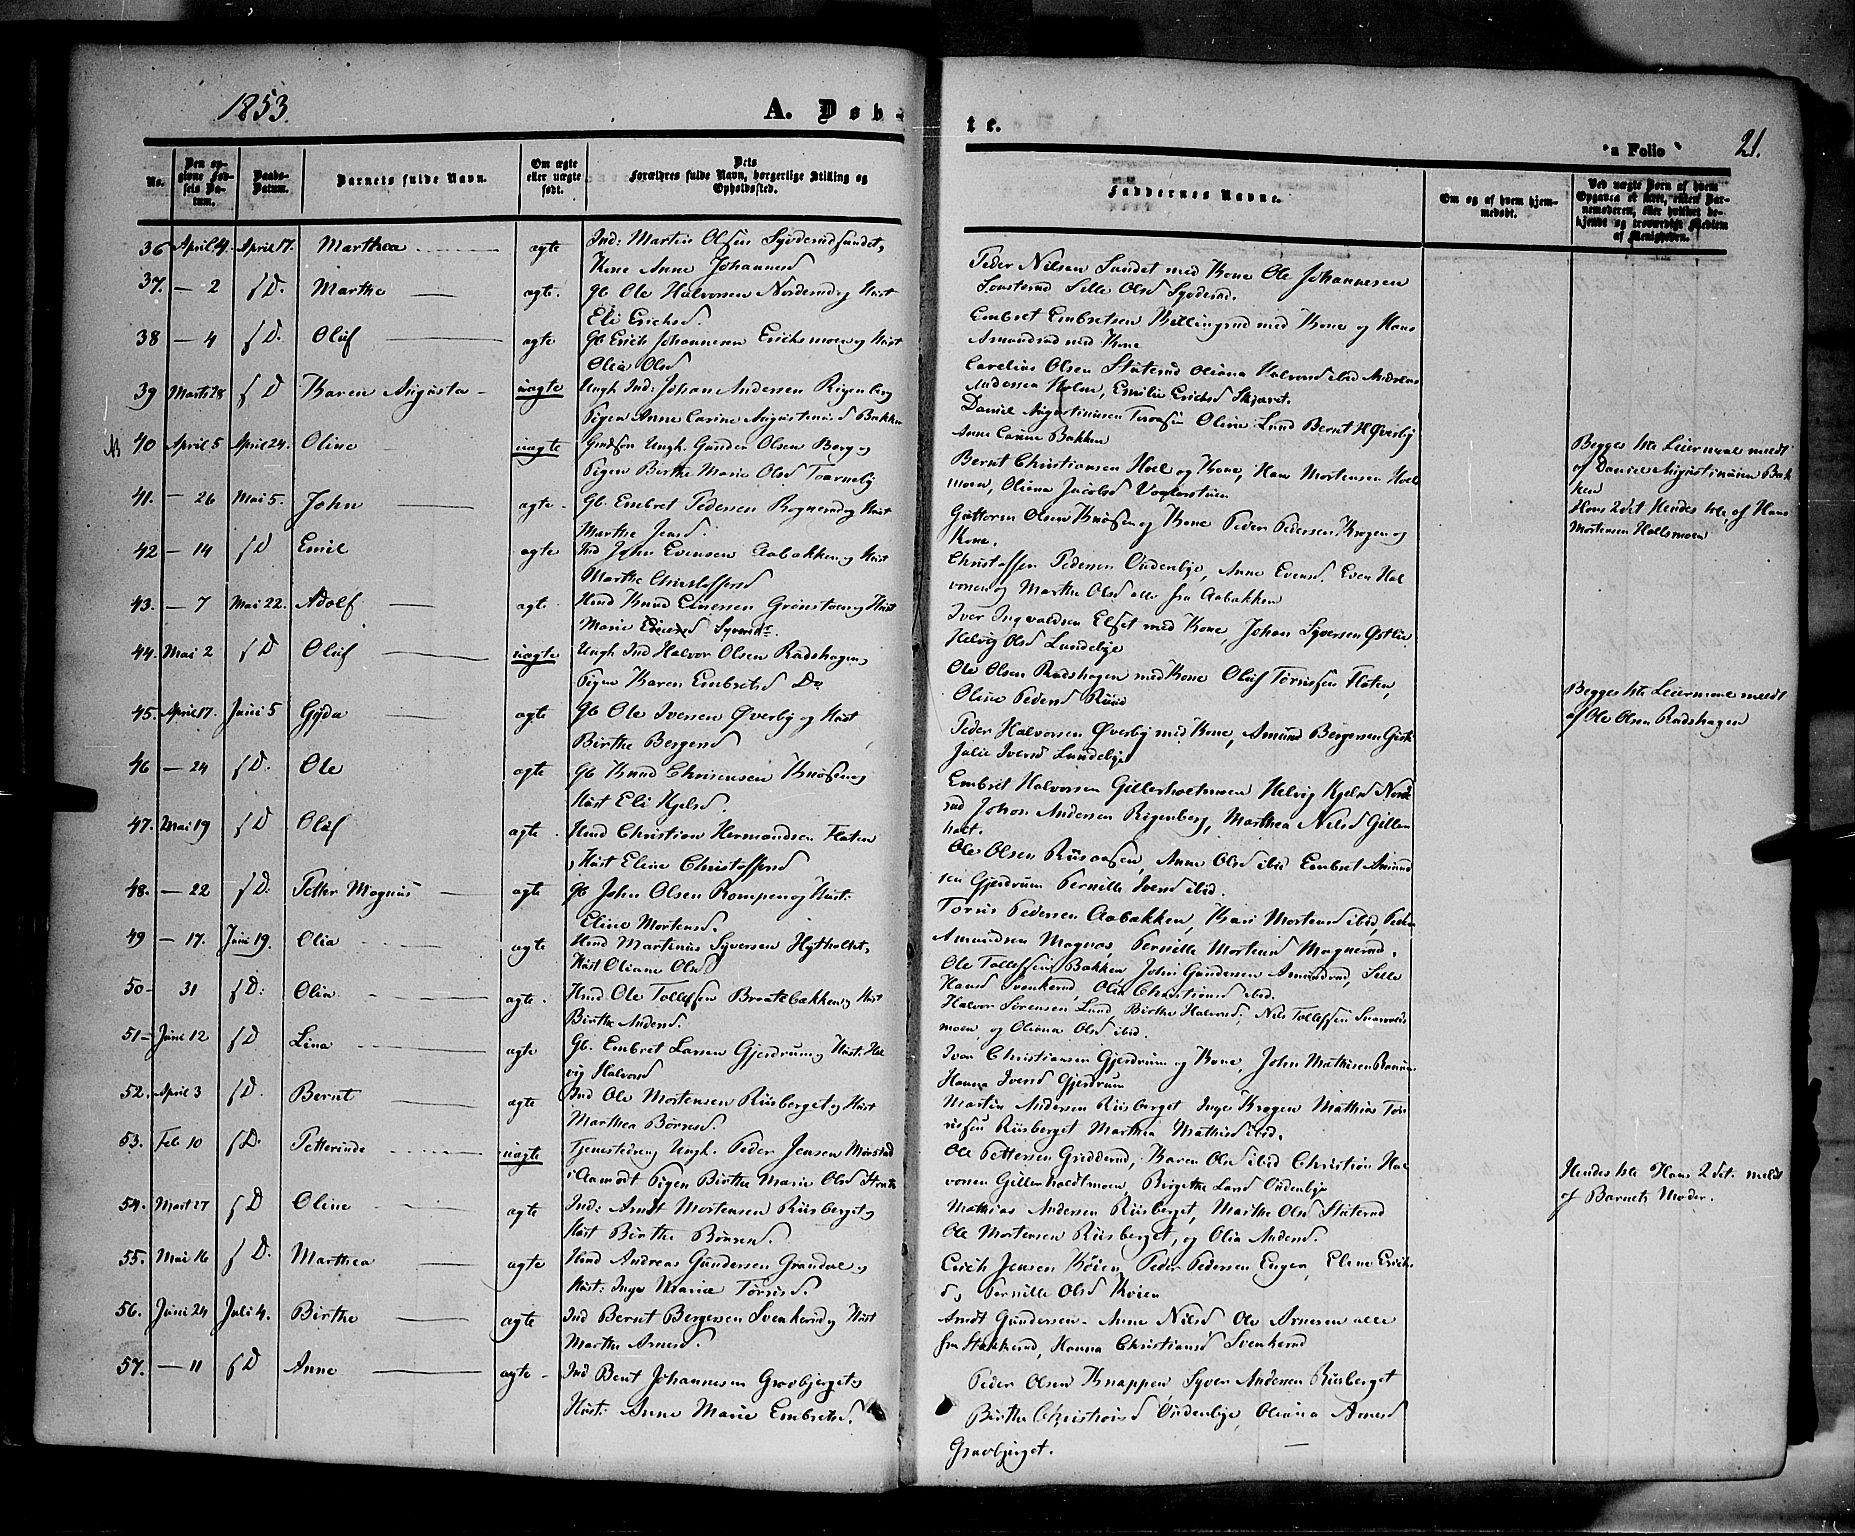 1853.
A. Døb-
te.
a Folio
21.
No.
Den opgivne Fødsels Datum.
Daabs-Datum.
Barnets fulde Navn.
Om ægte eller uægte født.
Dets Forældres fulde Navn, borgerlige Stilling og Opholdssted.
Faddernes Navne.
Om og af hvem hjemmedøbt.
Ved uægte Børn af hvem Opgaven er skeet, enten Barnemoderen, eller hvilket bekjendt og troværdigt Medlem af Menigheden.
36 April 4. April 17. Marthea ægte Ind: Martin Olsen Syverudsundet,
Kone Anne Johannesd
Peder Nilsen Sundet med Kone Ole Johannesen
Sille Olsd
37. — 2 f D. Marthe ægte. Gb Ole Halvorsen Norderud og Hust
Eli Ericksd.
Embret Embretsen Billingrud med Kone og Hans
Amundrud med Kone
38 — 4 f D. Oluf ægte Gb Erich Johannesen Erichsmoen og Hust
Olia Olsd
Carelius Olsen Stuterud Oliana Halvorsd ibid Andreas
Andersen Holm, Emilie Ericksd Skjæret.
39 Marts 28 f D Karen Augusta uægte Ungk Ind. Johan Andersen Rigenberg
Pigen Anne Carine Augustinusd Bakken
Daniel Augustinusen Oline Lund Bernt Øverby
Anne Carine Bakken
Begges 1ste Leiermaal meldt
af Daniel Augustinusen Bak
ken
40 April 5 April 24. Oline uægte Ungk. Gunder Olsen Berg
Pigen Birthe Marie Olsd Taarneby
Bernt Christiansen Hoel og Kone, Hans Mortensen Hoels
moen, Oliana Jacobsd
Hans 2det Hendes 1ste af Hans
Mortensen Hollsmoen
41. — 26 Mai 5. John ægte Gb. Embret Pedersen Rognerud og Hust
Marthe Jensd.
Guttorm Olsen Knøsen og Kone Peder Pedersen Krogen og
Kone.
42 — 14 f D Emil ægte Ind John Evensen Aabakken og Hust
Marthe Christoffersd
Christoffer Pedersen Oudenbye, Anne Evensd. Even Hal
vorsen og Marthe Olsd alle fra Aabakken
43. — 7 Mai 22. Adolf ægte Hmd Knud Einersen Grønstuen og Hust
Marie Syversdr.
Iver Ingvaldsen Elset med Kone, Johan Syversen Østlie
Helvig Olsd Lundebye
44. Mai 2 f D Oluf uægte Ungk Ind Halvor Olsen Rudshagen,
Pigen Karen Embretsd Do
Ole Olsen Rudshagen med Kone Oluf Flaten,
Oline Pedersd Ruud
Begges 1ste Leiermaal meldt
af Ole Olsen Rudshagen
45. April 17. Juni 5 Gyda ægte Gb Ole Iversen Øverby og Hust
Birthe Bergersd
Peder Halvorsen Øverby med Kone, Amund Bergersen
Julie Iversd Lundebye
46 — 24 f D. Ole ægte Gb Knud Christensen Knøsen og
Hust Eli Kjelsd.
Embret Halvorsen Gillerholtmoen Helvig Kjelsd
Johan Andersen Rigenberg, Marthea Nilsd Giller
holt.
47. Mai 19 f D Oluf ægte. Hmd Christian Hermandsen Flaten
og Hust Eline Christoffersd
Ole Olsen Riisaasen, Anne Olsd ibid Embret Amund
sen Gjerdrum Pernille Iversd ibid.
48. — 22 f D. Petter Magnus ægte Gb John Olsen Rompen og Hust:
Eline Mortensd.
Pedersen Aabakken, Kari Mortensd ibid, Peder
Amundsen Magnæs, Pernille Mortensd Magnerud.
49 — 17. Juni 19. Olia ægte Hmd Martinus Syversen Hytholtet,
Hust Oliane Olsd
Ole Tollefsen Bakken John Gundersen Amundrud, Sille
Hansd Svenkerud, Olia Christiansd ibid.
50 31 f D: Olia ægte. Hmd Ole Tollefsen Braatebakken og Hust
Birthe Andersd.
Halvor Sørensen Lund, Birthe Halvorsd, Nils Tollefsen
moen, og Oliana Olsd ibid.
51 Juni 12 f D Lina ægte Gb. Embret Larsen Gjerdrum og Hust. Hel
vig Halvorsd
Iver Christiansen Gjerdrum og Kone, John Mathisen
Hanna Iversd Gjerdrum
52. April 3 f D. Bernt ægte Ind Ole Mortensen Riisberget og Hust
Marthea Børresd.
Martin Andersen Riisberget Inge Krogen Mathias
Riisberget Marthea Mathisd ibid.
53. Feb 10 f D. Petterinde uægte Tjenestedreng Ungk. Peder Jensen Mørstad
i Aamodt Pigen Birthe Marie Olsd
Ole Pettersen Karen Olsd ibid Christian Hal
vorsen Gillerholdtmoen, Birgethe Larsd Oudenbye
Hendes 1ste Hans 2det. meldt
af Barnets Moder.
54. Mart 27 f D Oline ægte Ind: Arndt Mortensen Riisberget,
Hust Birthe Børresd.
Mathias Andersen Riisberget, Marthe Olsd Stuterud
Ole Mortensen Riisberget, og Olia Andersd.
55. Mai 16 f D. Marthea ægte Hmd Andreas Gundersen Grandal,
Hust: Inge Marie
Erich Jensen Køien, Peder Pedersen Engen, Eline Erichs
d, Pernille Olsd Køien
56. Juni 24 Juli 4. Birthe ægte Ind Bernt Bergersen Svenkerud og Hust
Marthe Arnesd.
Arndt Gundersen Anne Nilsd Ole Arnesen alle
fra Stakkerud, Hanna Christiansd Svenkerud
57. — 11 f D Anne ægte Ind Bent Johannesen Gravberget,
Hust: Anne Marie Embretsd.
Peder Olsen Knappen, Syver Andersen Riisberget
Birthe Christiansd Oudenbye, Oliana Arnesd
Gravberget.